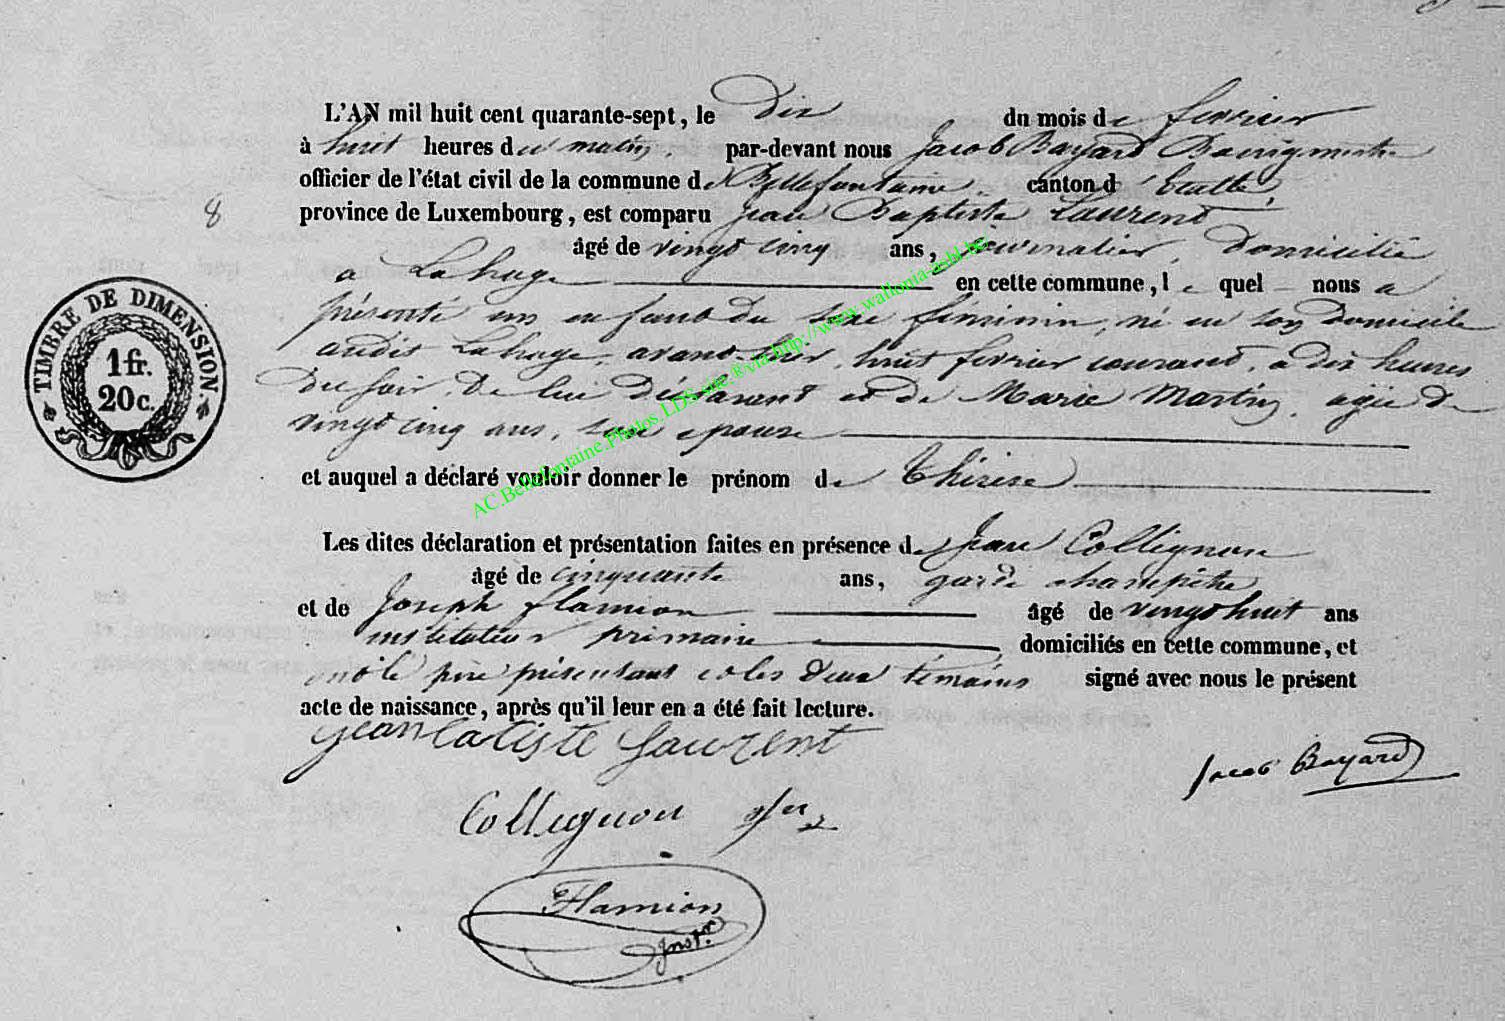 L'AN mil huit cent quarante-sept, le Dix du mois de fevrier
à huit heures du matin, par-devant nous Jacob Bayard Bourgmestre
officier de l'état civil de la commune de Bellefontaine, canton d'Etalle,
province de Luxembourg, est comparu Jean Baptiste Laurent
8
âgé de vingt cinq ans, journalier, domicilié
a Lahage en cette commune, le quel nous a
présenté un enfant du sexe feminin, né en son domicile
audit Lahage, avant-hier, huit fevrier courant, a dix heures
du soir, de lui déclarant et de Marie Martin, agée de
vingt cinq ans, son epouse
et auquel a déclaré vouloir donner le prénom de Thérèse
TIMBRE DE DIMENSION.
1 fr.
20 c.
Les dites déclaration et présentation faites en présence de Jean Collignon
âgé de cinquante ans, garde champêtre
et de Joseph Flamion âgé de vingt huit ans
instituteur primaire, domiciliés en cette commune, et
ont le père présentant et les deux témoins signé avec nous le présent
acte de naissance, après qu'il leur en a été fait lecture.
jean batiste Laurent
Jacob Bayard
Collignon
Flamion
Instr.
AC.Bellefontaine.Photos.LDS site.®via http://www.wallonia-asbl.be